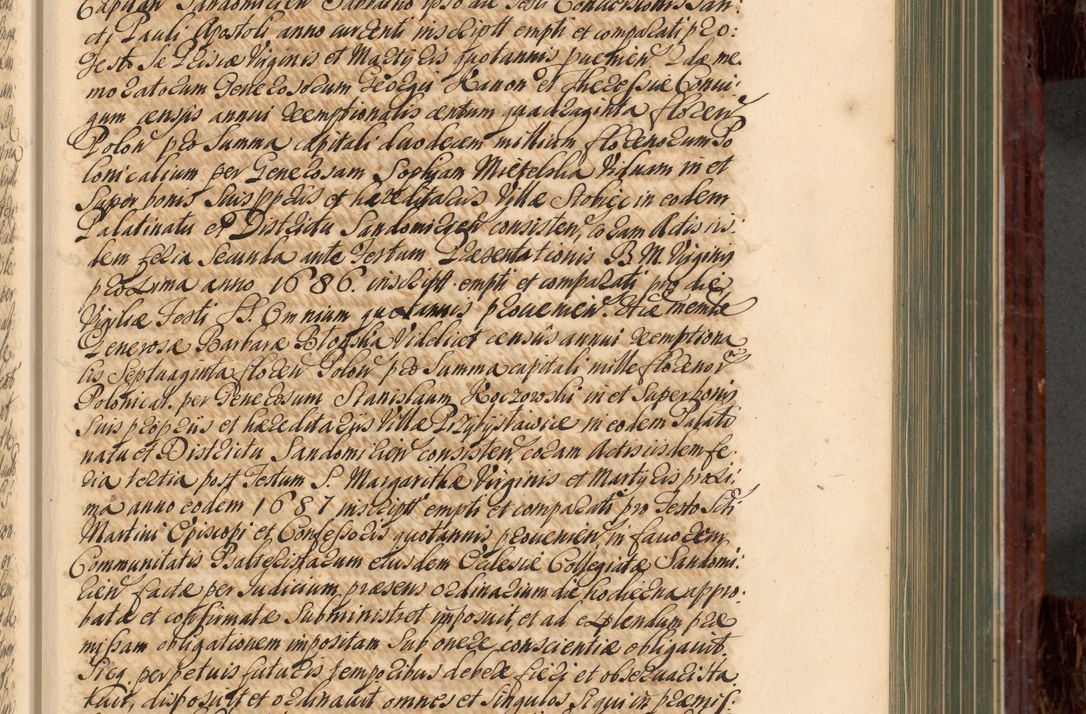 Capitan Sandomirien Sabbatho ipso die Festi Conversionis San:
cti Pauli Apostoli anno currenti inscript empti et comparati pro:
Festo Se Priscæ Virginis et Martyris quotannis provenien Prædæme
moratorum Generosorum Georgii Hanon et Theressiæ Coniu:
gum censûs annui reemptionalis centum quadraginta floren
Polon pro Summa capitali duodecem millium florenorum Po
lonicalium per Generosam Sophiam Mietelska Viduam in et
Super bonis Suis ppriis et hæreditariis Villæ Strobice in eodem
Palatinatu et Districtu Sandomirien consisten, coram Actis iis:
dem feria Secunda ante Festum Præsentationis B. M. Virginis
proxima anno 1686. inscript empti et comparati pro die
Vigiliæ Festi SS. Omnium quotannis provenien. Ac memoratæ
Generosæ Barbaræ Błońska Videlicet censûs annui reemptiona
lis Septuaginta floren Polon pro Summa capitali mille florenor
Polonical. per Generosum Stanislaum Koczowski in et Super bonis
Suis propriis et hæreditariis Villæ Przybysławice in eodem Palati
natu et Districtu Sandomirien consisten, coram Actis iisdem fe
ria tertia post Festum S. Margarithæ Virginis et Martyris proxi
ma anno eodem 1687 inscript empti et comparati pro Festo Scti
Martini Episcopi et Confessoris quotannis provenien in favorem
Communitatis Psalteristarum eiusdem Ecclesiæ Collegiatæ Sandomi:
rien factæ per Judicium præsens ordinarium die hodierna appro:
batæ et confirmatæ Subministret imposuit et ad explendum præ
missam obligationem impositam Sub onere conscientiæ obligavit.
Sicq. perpetuis futuris temporibus debere fieri et observari sta
tuit, disposuit et ordinavit omnes et Singulos Si qui in præmis: